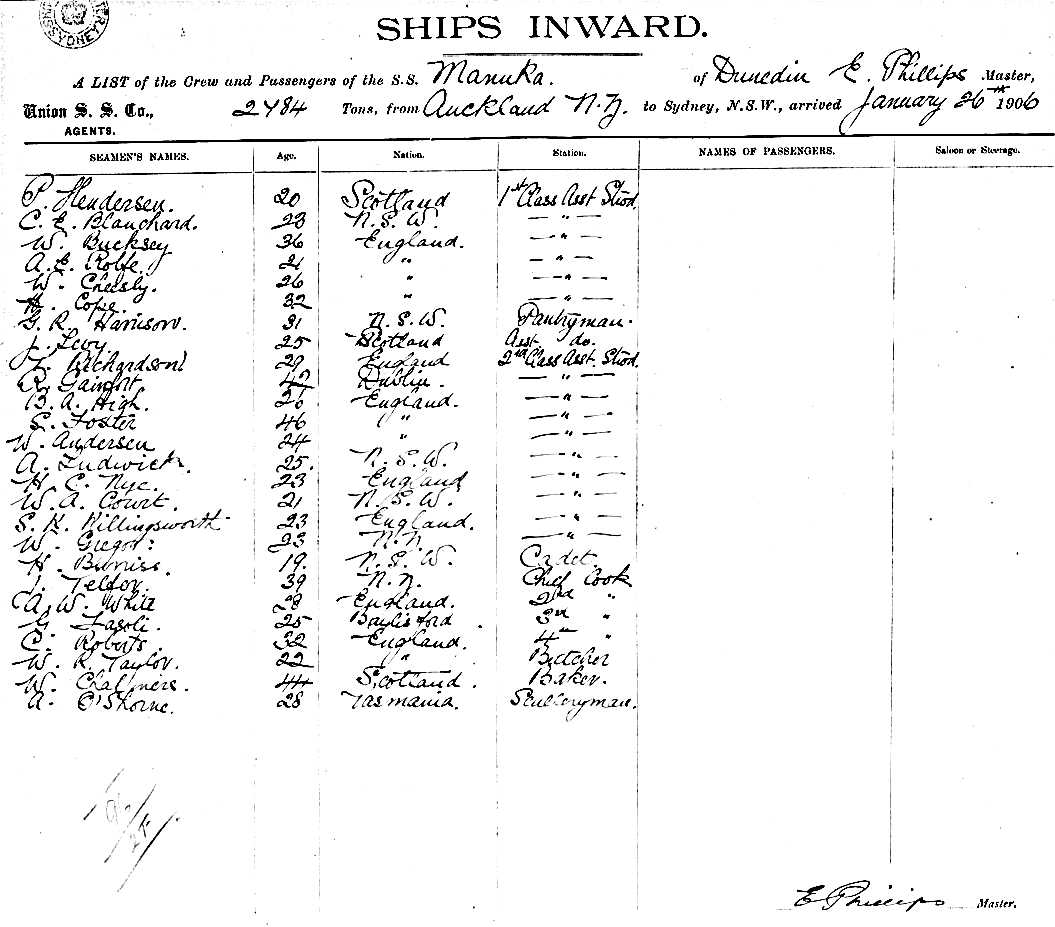 SYDNEY
SHIPS INWARD.
A LIST of the Crew and Passengers of the S.S. Manuka. of Dunedin E. Phillips Master,
Union S. S. Co., 2484 Tons, from Auckland N.Z. to Sydney, N.S.W., arrived January 26th 1906
AGENTS.
SEAMEN'S NAMES. Age. Nation. Station. NAMES OF PASSENGERS. Saloon or Steerage.
P. Hendersen. 20 Scotland 1st Class Asst Stwd.
C. E. Blanchard. 23 N.S.W. — " —
W. Bucksey 36 England. — " —
A. E. Rolfe. 21 " — " —
W. Cheesly. 26 " — " —
H. Cope. 32 " — " —
G. R. Harrison. 31 N.S.W. Pantryman.
J. Levy 25 Scotland Asst do.
Richardson 29 England 2nd Class Asst. Stwd.
R. 42 Dublin. — " —
B. A. High. 26 England. — " —
S. Foster 46 " — " —
W. Andersen 24 " — " —
A. Ludwick. 25. N.S.W. — " —
H. C. Nye. 23 England — " —
W. A. Court. 21 N.S.W. — " —
S. K. Killingsworth 23 England. — " —
W. Gregor: 23 N.Z. — " —
H. 19. N.S.W. Cadet.
39 N.Z. Chief Cook
A. W. White 28 England. 2nd "
G. Fasoli. 25 3rd "
C. Roberts. 32 England. 4th "
W. R. Taylor. 22 " Butcher
W. Chalmers. 44 Scotland. Baker.
A. O'Shorne. 28 Tasmania. Sculleryman.
E Phillips Master.